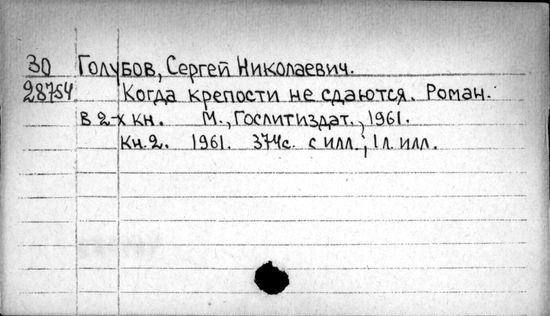 30 Голубов, Сергей Николаевич.
28754 Когда крепости не сдаются. Роман.
в 2-х кн. М., Гослитиздат., 1961.
Кн. 2. 1961. 374с. с илл.; 1 л. илл.